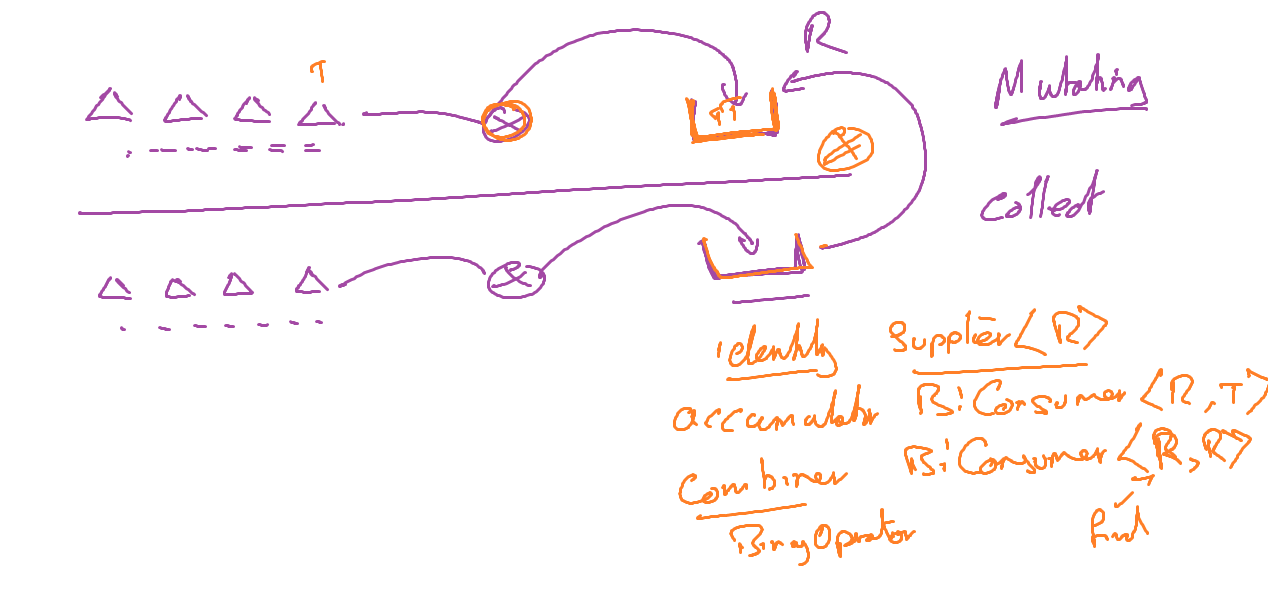 R
T
Mutating
Collect
identity Supplier<R>
accumulator BiConsumer<R,T>
Combiner BiConsumer<R,R>
BinaryOperator